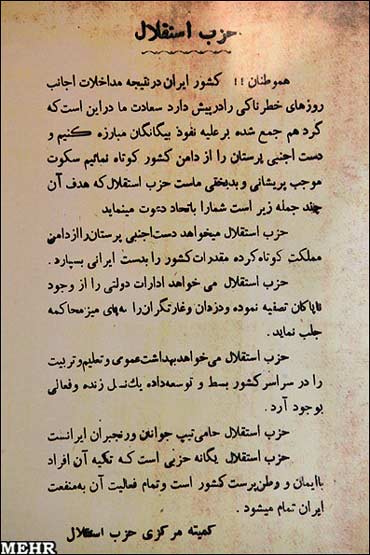 حزب استقلال
هموطنان !! کشور ایران در نتیجه مداخلات اجانب
روزهای خطرناکی را درپیش دارد سعادت ما در این است که
گرد هم جمع شده بر علیه نفوذ بیگانگان مبارزه کنیم و
دست اجنبی پرستان را از دامن کشور کوتاه نمائیم سکوت
موجب پریشانی و بدبختی ماست حزب استقلال که هدف آن
چند جمله زیر است شما را باتحاد دعوت مینماید
حزب استقلال میخواهد دست اجنبی پرستان را از دامن
مملکت کوتاه کرده مقدرات کشور را بدست ایرانی بسپارد .
حزب استقلال می خواهد ادارات دولتی را از وجود
ناپاکان تصفیه نموده و دزدان و غارتگران را به پای میز محاکمه
جلب نماید .
حزب استقلال می خواهد بهداشت عمومی و تعلیم و تربیت
را در سراسر کشور بسط و توسعه داده یک نسل زنده و فعالی
بوجود آرد .
حزب استقلال حامی تیپ جوانان و رنجبران ایرانست
حزب استقلال یگانه حزبی است که تکیه آن افراد
باایمان و وطن پرست کشور است و تمام فعالیت آن به منفعت
ایران تمام میشود .
کمیته مرکزی حزب استقلال
MEHR